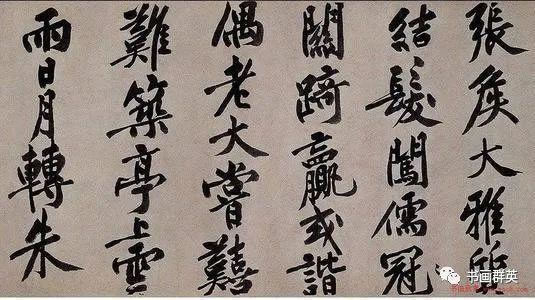 張矦大雅質
結髮闖儒冠
關踦贏或諧
偶老大嘗囏
難築亭上雲
雨日月轉朱
书画群英